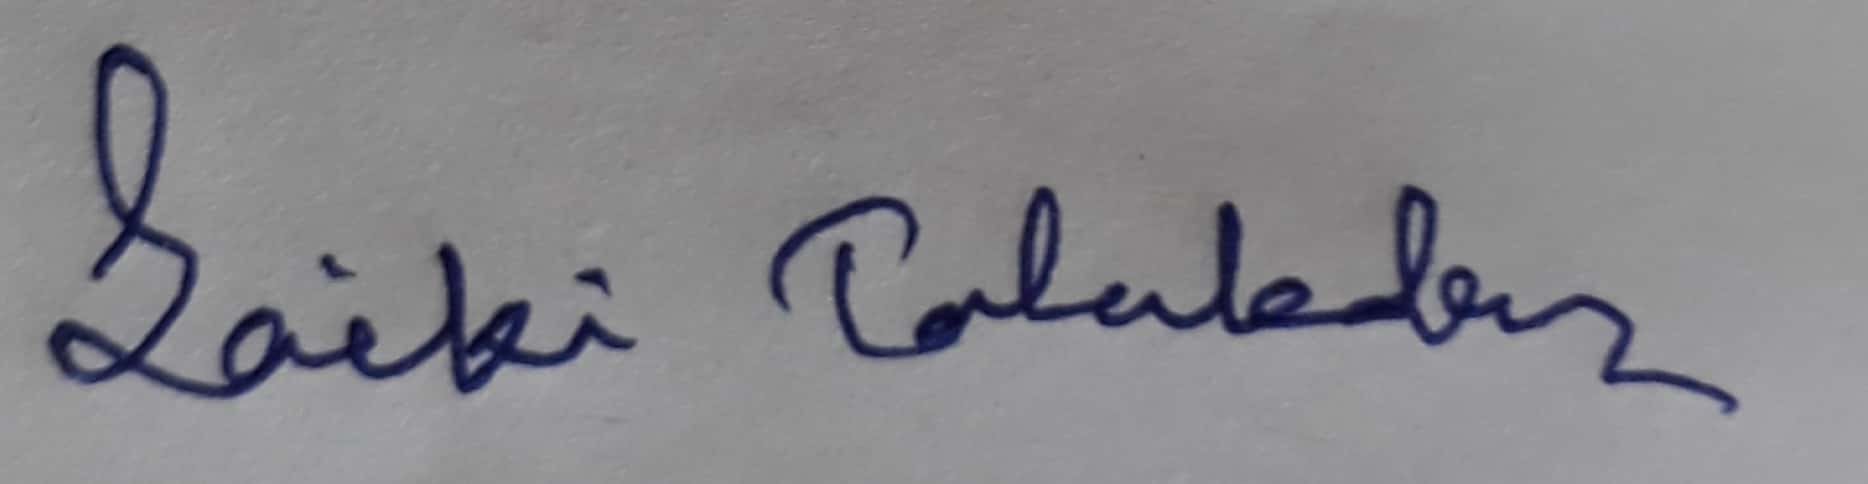 Saiki Talukdar